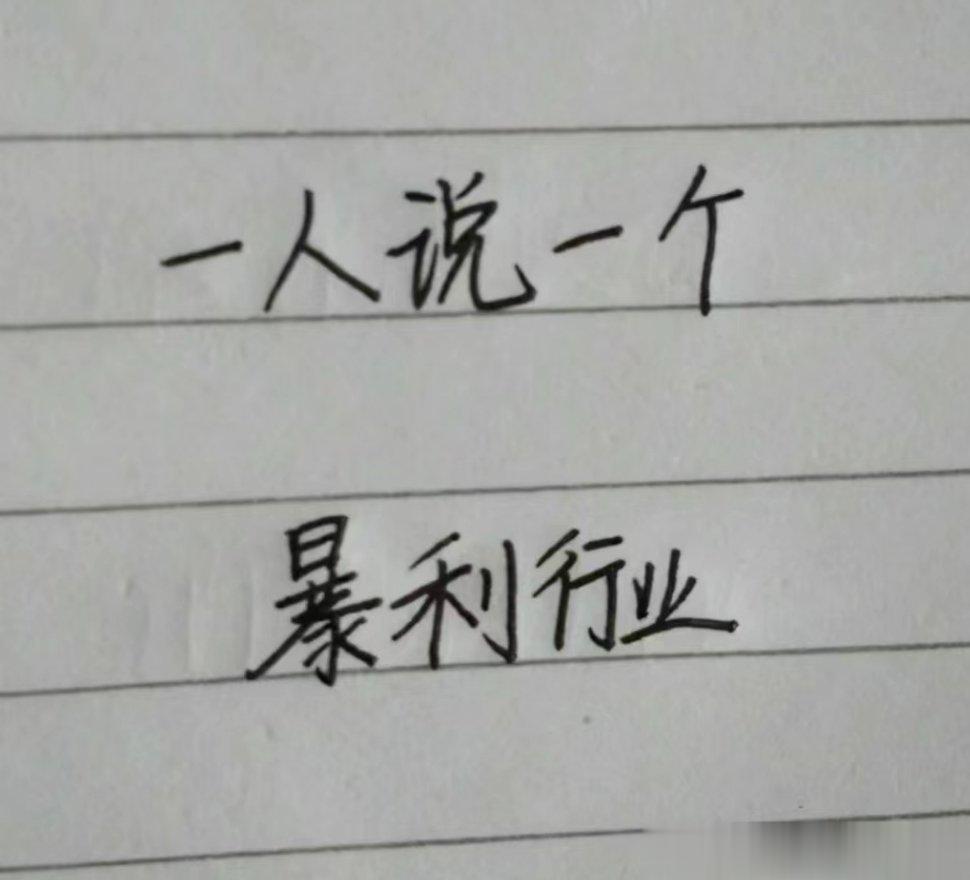 一人说一个
暴利行业